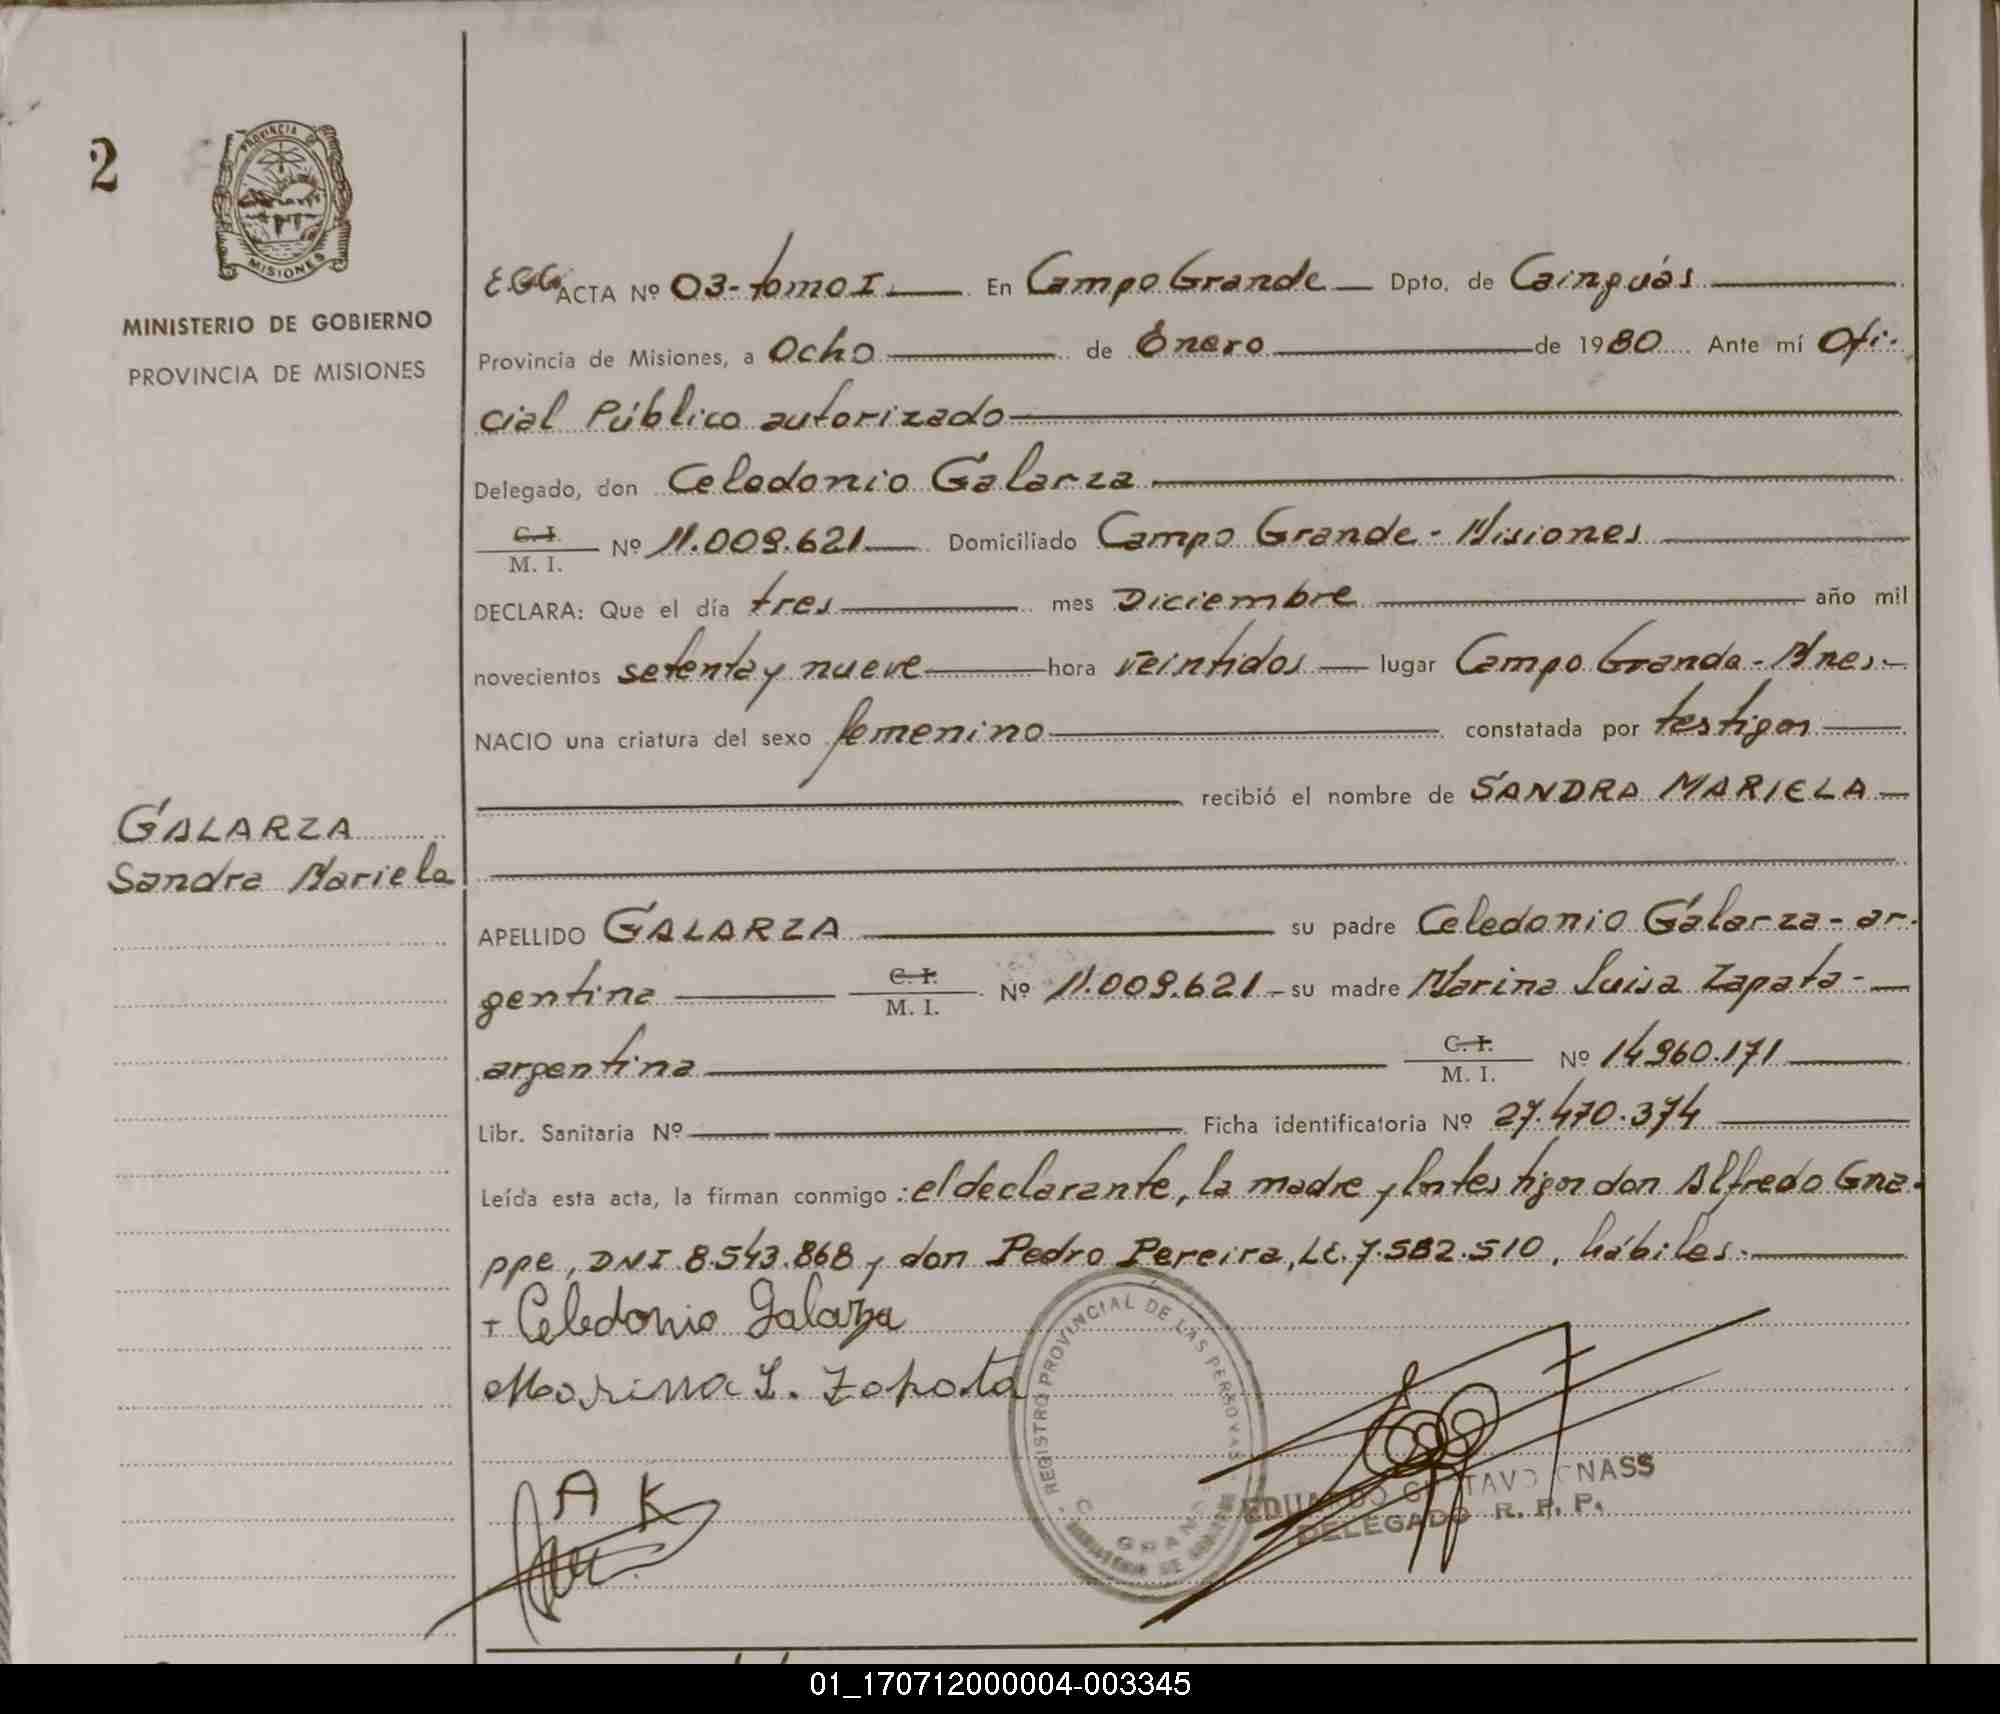 2
PROVINCIA DE
MISIONES
MINISTERIO DE GOBIERNO
PROVINCIA DE MISIONES
GALARZA
Sandra Mariela
E.G.G. ACTA Nº 03-tomo I. En Campo Grande Dpto. de Cainguás
Provincia de Misiones, a Ocho de Enero de 1980 Ante mí Ofi-
cial Público autorizado
Delegado, don Celedonio Galarza
C. I.
M. I. Nº 11.009.621 Domiciliado Campo Grande - Misiones
DECLARA: Que el día tres mes Diciembre año mil
novecientos setenta y nueve hora veintidos lugar Campo Grande - Mnes.-
NACIO una criatura del sexo femenino constatada por testigos
recibió el nombre de SANDRA MARIELA
APELLIDO GALARZA su padre Celedonio Galarza - ar-
gentina C. I. M. I. Nº 11.009.621 - su madre Marina Luisa Zapata -
argentina C. I. M. I. Nº 14960.171
Libr. Sanitaria Nº Ficha identificatoria Nº 27.470.374
Leída esta acta, la firman conmigo: el declarante, la madre y los testigos don Alfredo Gna-
ppe, DNI 8.543.868 y don Pedro Pereira, LE. 7.582.510, hábiles.-
+ Celedonio Galarza
Marina L. Zapata
A K
REGISTRO PROVINCIAL DE LAS PERSONAS
EDUARDO GUSTAVO GNASS
DELEGADO R. P. P.
01_170712000004-003345